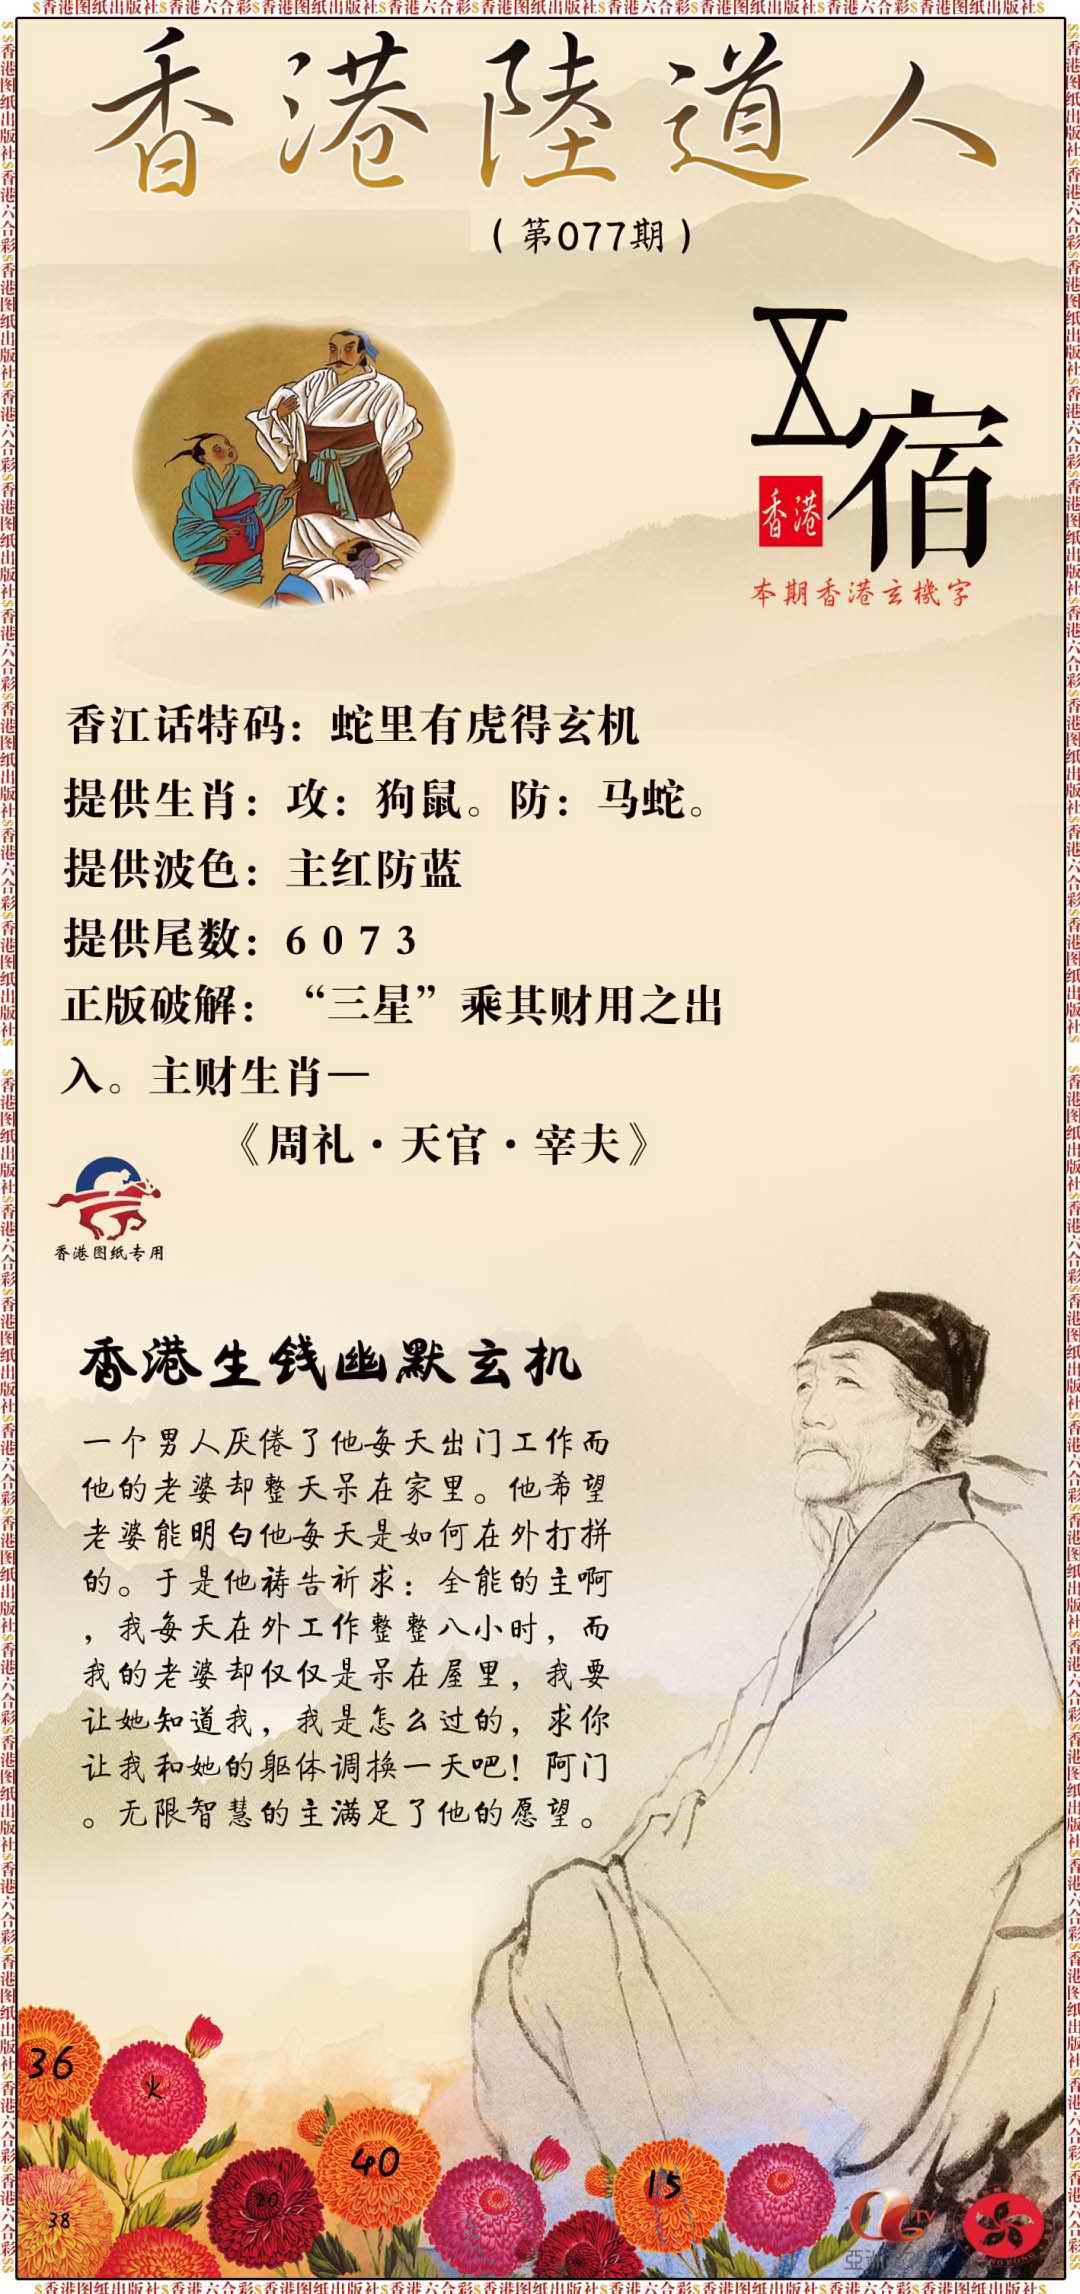 $香港图纸出版社$香港六合彩$香港图纸出版社$香港六合彩$香港图纸出版社$香港六合彩$香港图纸出版社$香港六合彩$香港图纸出版社$
香港陸道人
（第077期）
宿
香港
本期香港玄機字
香江话特码：蛇里有虎得玄机
提供生肖：攻：狗鼠。防：马蛇。
提供波色：主红防蓝
提供尾数：6 0 7 3
正版破解：“三星”乘其财用之出
入。主财生肖—
《周礼·天官·宰夫》
香港图纸专用
香港生钱幽默玄机
一个男人厌倦了他每天出门工作而
他的老婆却整天呆在家里。他希望
老婆能明白他每天是如何在外打拼
的。于是他祷告祈求：全能的主啊
，我每天在外工作整整八小时，而
我的老婆却仅仅是呆在屋里，我要
让她知道我，我是怎么过的，求你
让我和她的躯体调换一天吧！阿门
。无限智慧的主满足了他的愿望。
36
火
40
15
20
38
TV